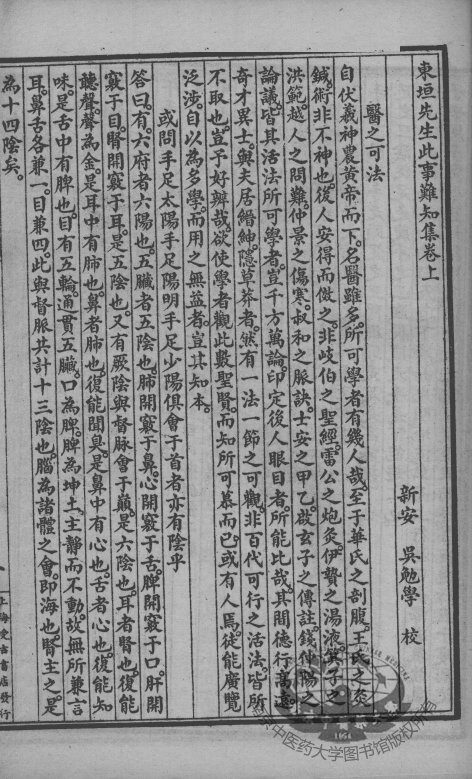 東垣先生此事難知集卷上
新安 吳勉學 校
醫之可法
自伏羲神農黃帝而下。名醫雖多。所可學者有幾人哉。至于華氏之剖腹。王氏之灸
鍼。術非不神也。後人安得而倣之。非岐伯之聖經。雷公之炮炙。伊摯之湯液。箕子之
洪範。越人之問難。仲景之傷寒。叔和之脈訣。士安之甲乙。啟玄子之傳註。錢仲陽之
論議。皆其活法所可學者。豈千方萬論。印定後人眼目者。所能比哉。其間德行高遠
奇才異士。與夫居縉紳。隱草莽者。然有一法一節之可觀。非百代可行之活法。皆所
不取也。豈予好辨哉。欲使學者觀此數聖賢。而知所可慕而已。或有人焉。徒能廣覽
泛涉。自以為多學。而用之無益者。豈其知本。
或問手足太陽手足陽明手足少陽俱會于首者亦有陰乎
答曰。有。六府者六陽也。五臟者五陰也。肺開竅于鼻。心開竅于舌。脾開竅于口。肝開
竅于目。腎開竅于耳。是五陰也。又有厥陰與督脉會于巔。是六陰也。耳者腎也。復能
聽聲。聲為金。是耳中有肺也。鼻者肺也。復能聞臭。是鼻中有心也。舌者心也。復能知
味。是舌中有脾也。目有五輪。通貫五臟。口為脾。脾為坤土。主靜而不動。故無所兼。言
耳鼻舌各兼一。目兼四。此與督脈共計十三陰也。腦為諸體之會。即海也。腎主之。是
為十四陰矣。
上海受古書店發行
中医药大学图书馆版权所有
1956